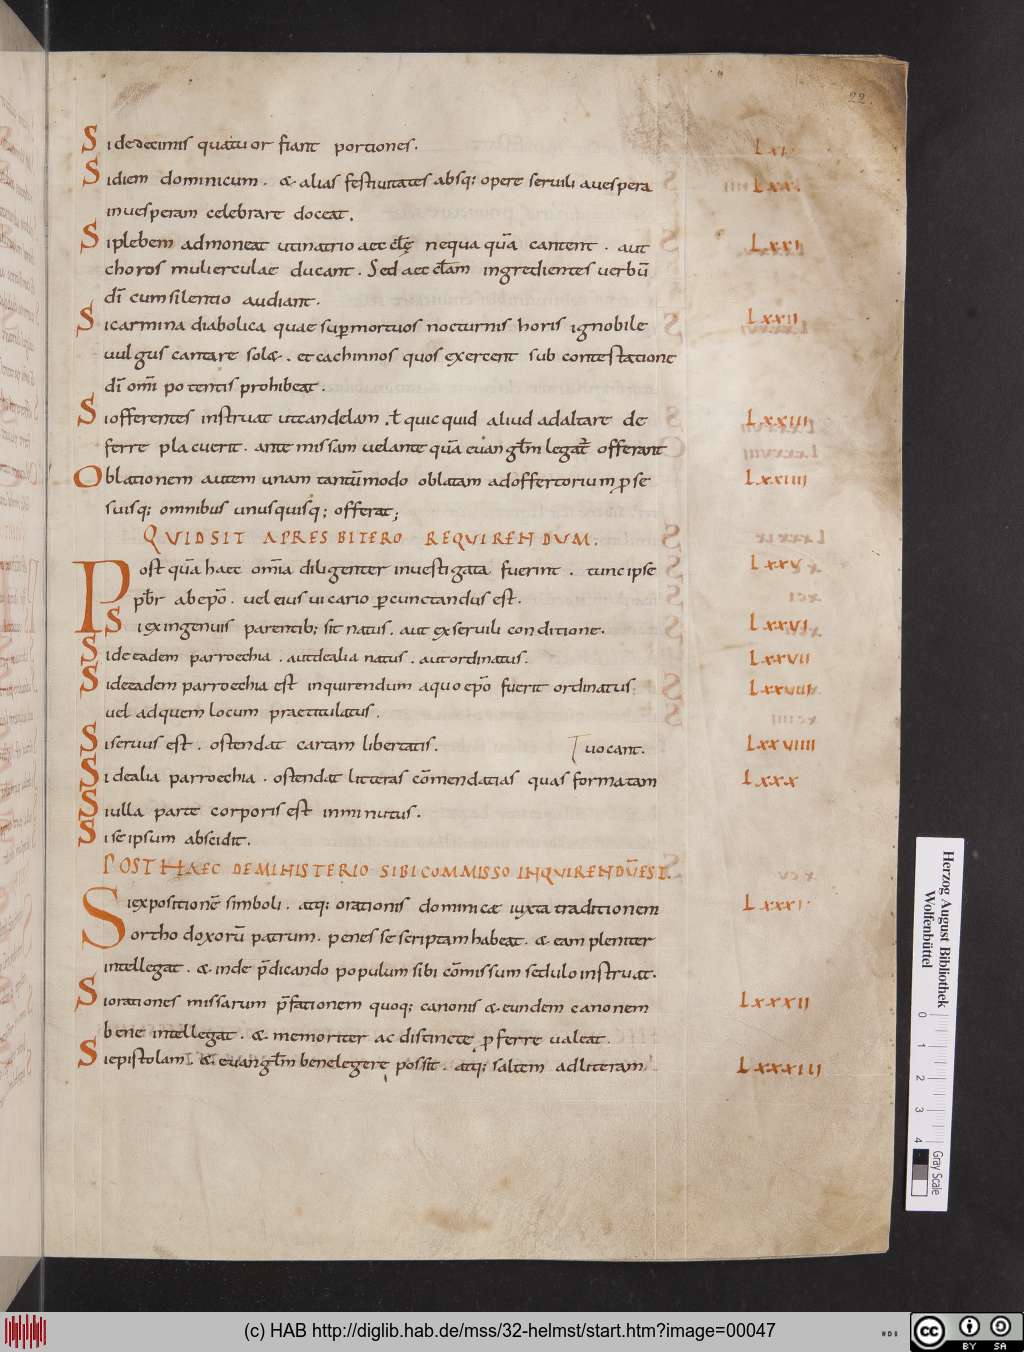 22.
Si dedecimis quatuor fiant portiones. Lxx
Si diem dominicum. & alias festiuitates absq; opere seruili auespera Lxxi
inuesperam celebrare doceat.
Si plebem admoneat utinatrio aeccłę nequaquā cantent. aut Lxxi
choros mulierculae ducant. Sed aeccłam ingredientes uerbū
dī cumsilentio audiant.
Si carmina diabolica quae supmortuos nocturnis horis ignobile Lxxii
uulgus cantare sol&. et cachinnos quos exercent sub contestatione
dī omī potentis prohibeat.
Si offerentes instruat utcandelam. ł quicquid aliud adaltare de Lxxiii
ferre placuerit. ante missam uelantequā euangłm legat offerant
Oblationem autem unam tantūmodo oblatam adoffertorium pse
suisq; omnibus unusquisq; offerat;
QUID SIT APRESBITERO REQUIRENDUM.
Post quā haec omīa diligenter inuestigata fuerint. tunc ipse Lxxv
pbr abepō. uel eius uicario pcunctandus est.
Si exingenuis parentib; sit natus. aut exseruili conditione. Lxxvi
Si de eadem parroechia. autdealia natus. autordinatus. Lxxvii
Si deeadem parroechia est inquirendum aquo epō fuerit ordinatus Lxxviii
uel adquem locum praetitulatus.
Si seruus est. ostendat cartam libertatis. Lxxviiii
uocant.
Si dealia parroechia. ostendat litteras cōmendatias quas formatam Lxxx
Si ulla parte corporis est inminutus.
Si se ipsum abscidit.
POST HAEC DEMINISTERIO SIBI COMMISSO INQUIRENDŪ EST.
Si expositionē simboli. atq; orationis dominicæ iuxta traditionem Lxxxi
orthodoxorū patrum. penes se scriptam habeat. & eam pleniter
intellegat. & inde p̄dicando populum sibi cōmissum sedulo instruat.
Si orationes missarum p̄fationem quoq; canonis & eundem canonem Lxxxii
bene intellegat. & memoriter ac distincte pferre ualeat.
Si epistolam. & euangłm benelegere possit. atq; saltem adlitteram Lxxxiii
Herzog August Bibliothek
Wolfenbüttel
0 1 2 3 4
Gray Scale
(c) HAB http://diglib.hab.de/mss/32-helmst/start.htm?image=00047
HAB
cc BY SA